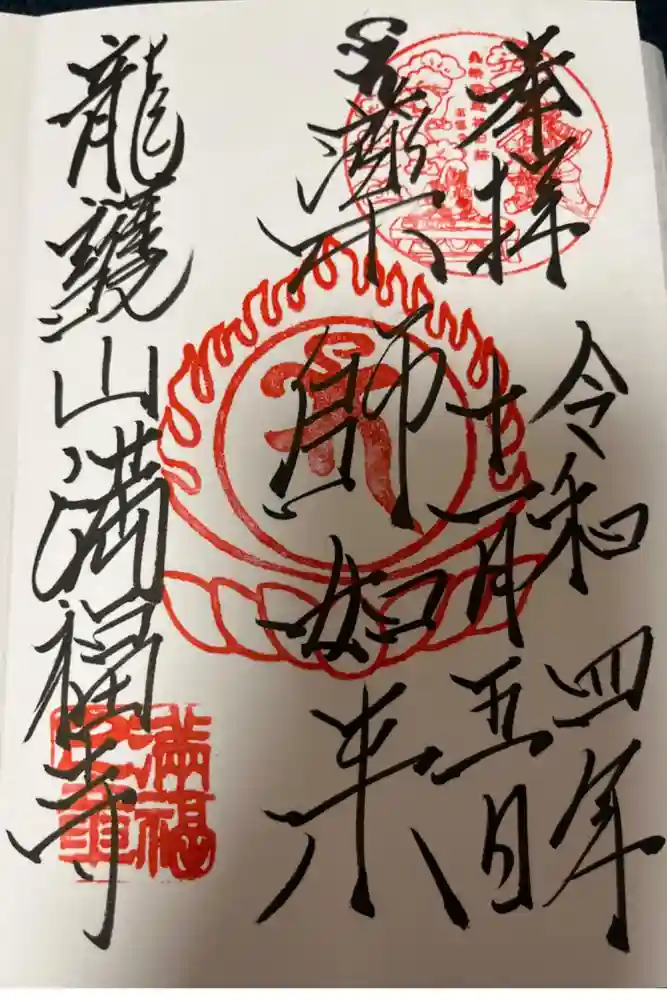 奉拝
令和四年
十一月五日
薬師如来
龍護山満福寺
滿福